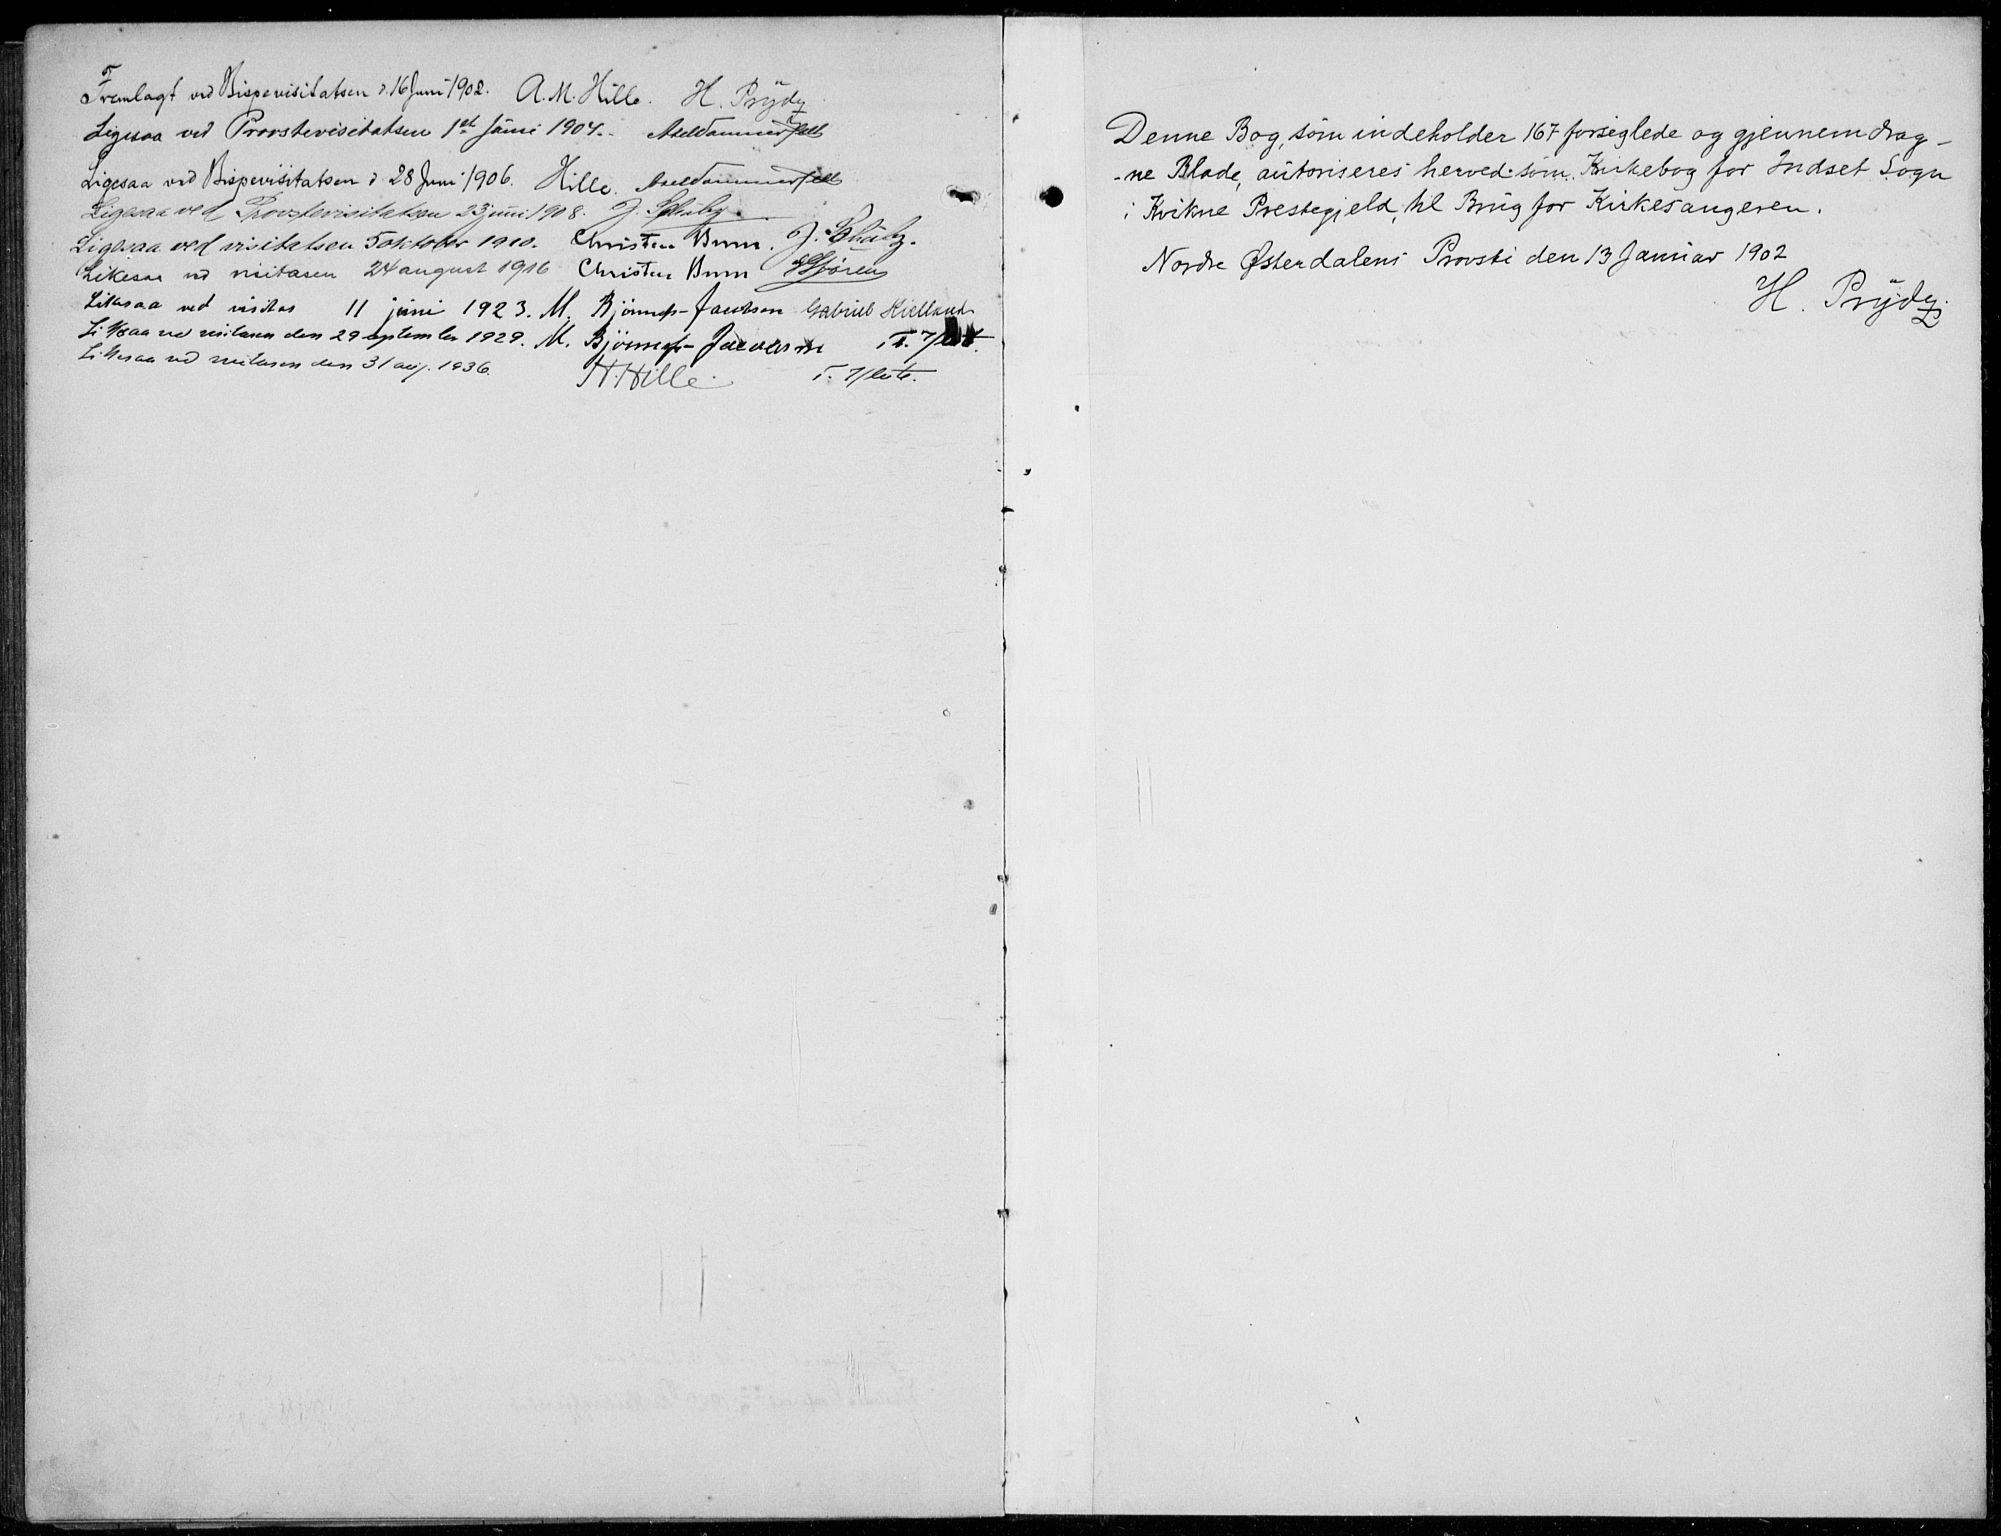 Fremlagt ved Bispevisitatsen d. 16 Juni 1902. A. M. Hille. H. Prÿdz
Ligesaa ved Provstevisitatsen 1st Jŭni 1904. Axel Dammerfelt
Ligesaa ved Bispevisitatsen d 28 Juni 1906. Hille. Axel Dammerfelt
Ligesaa ved Provstevisitatsen 23 jŭni 1908. J.
Ligesaa ved visitatsen 5 oktober 1910. Christen Brun. J.
Likesaa ved visitasen 24 august 1916 Christen Brun
Likesaa ved visitas 11 jŭni 1923. M. Bjönness-Jacobsen Gabriel Kielland
Likesaa ved visitasen den 29 september 1929. M. Bjönness-Jacobsen T.
Likesaa ved visitasen den 31 aug. 1936. H. Hille. T.
Denne Bog, som indeholder 167 forseglede og gjennemdrag-
-ne Blade, aŭtoriseres herved som Kirkebog for Indset Sogn
i Kvikne Prestegjeld, til Brŭg for Kirkesangeren.
Nordre Østerdalens Provsti den 13 Janŭar 1902
H. Prÿdz.